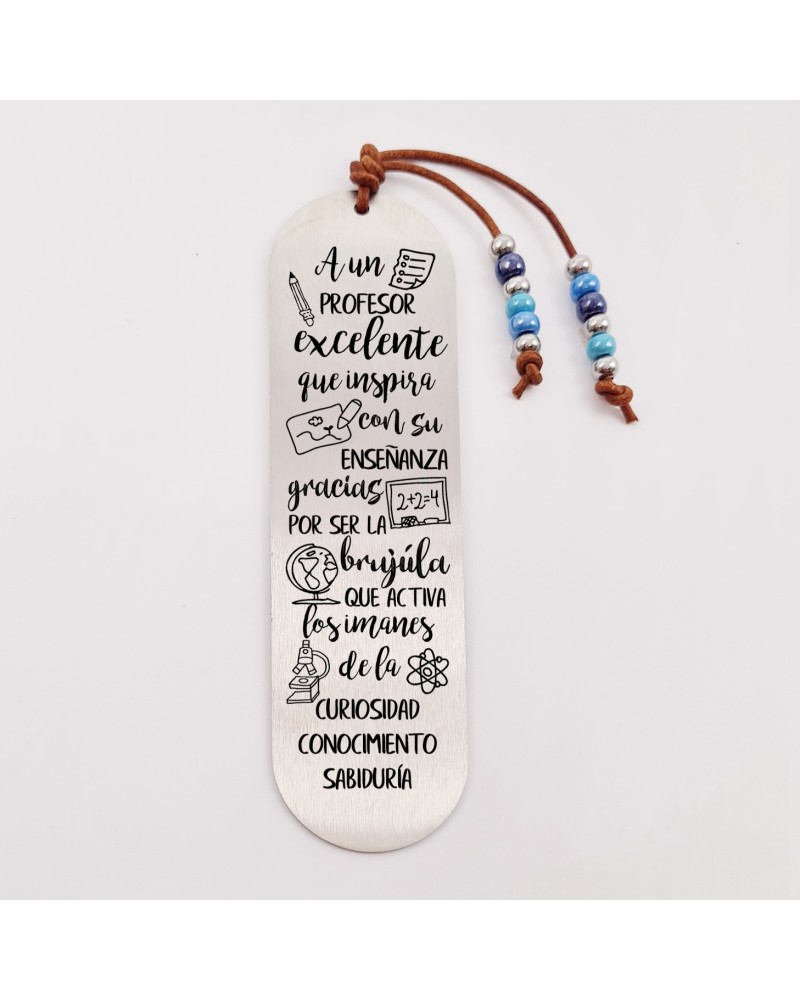 A un
PROFESOR
excelente
que inspira
con su
ENSEÑANZA
gracias
2+2=4
POR SER LA
brujúla
QUE ACTIVA
los imanes
de la
CURIOSIDAD
CONOCIMIENTO
SABIDURÍA